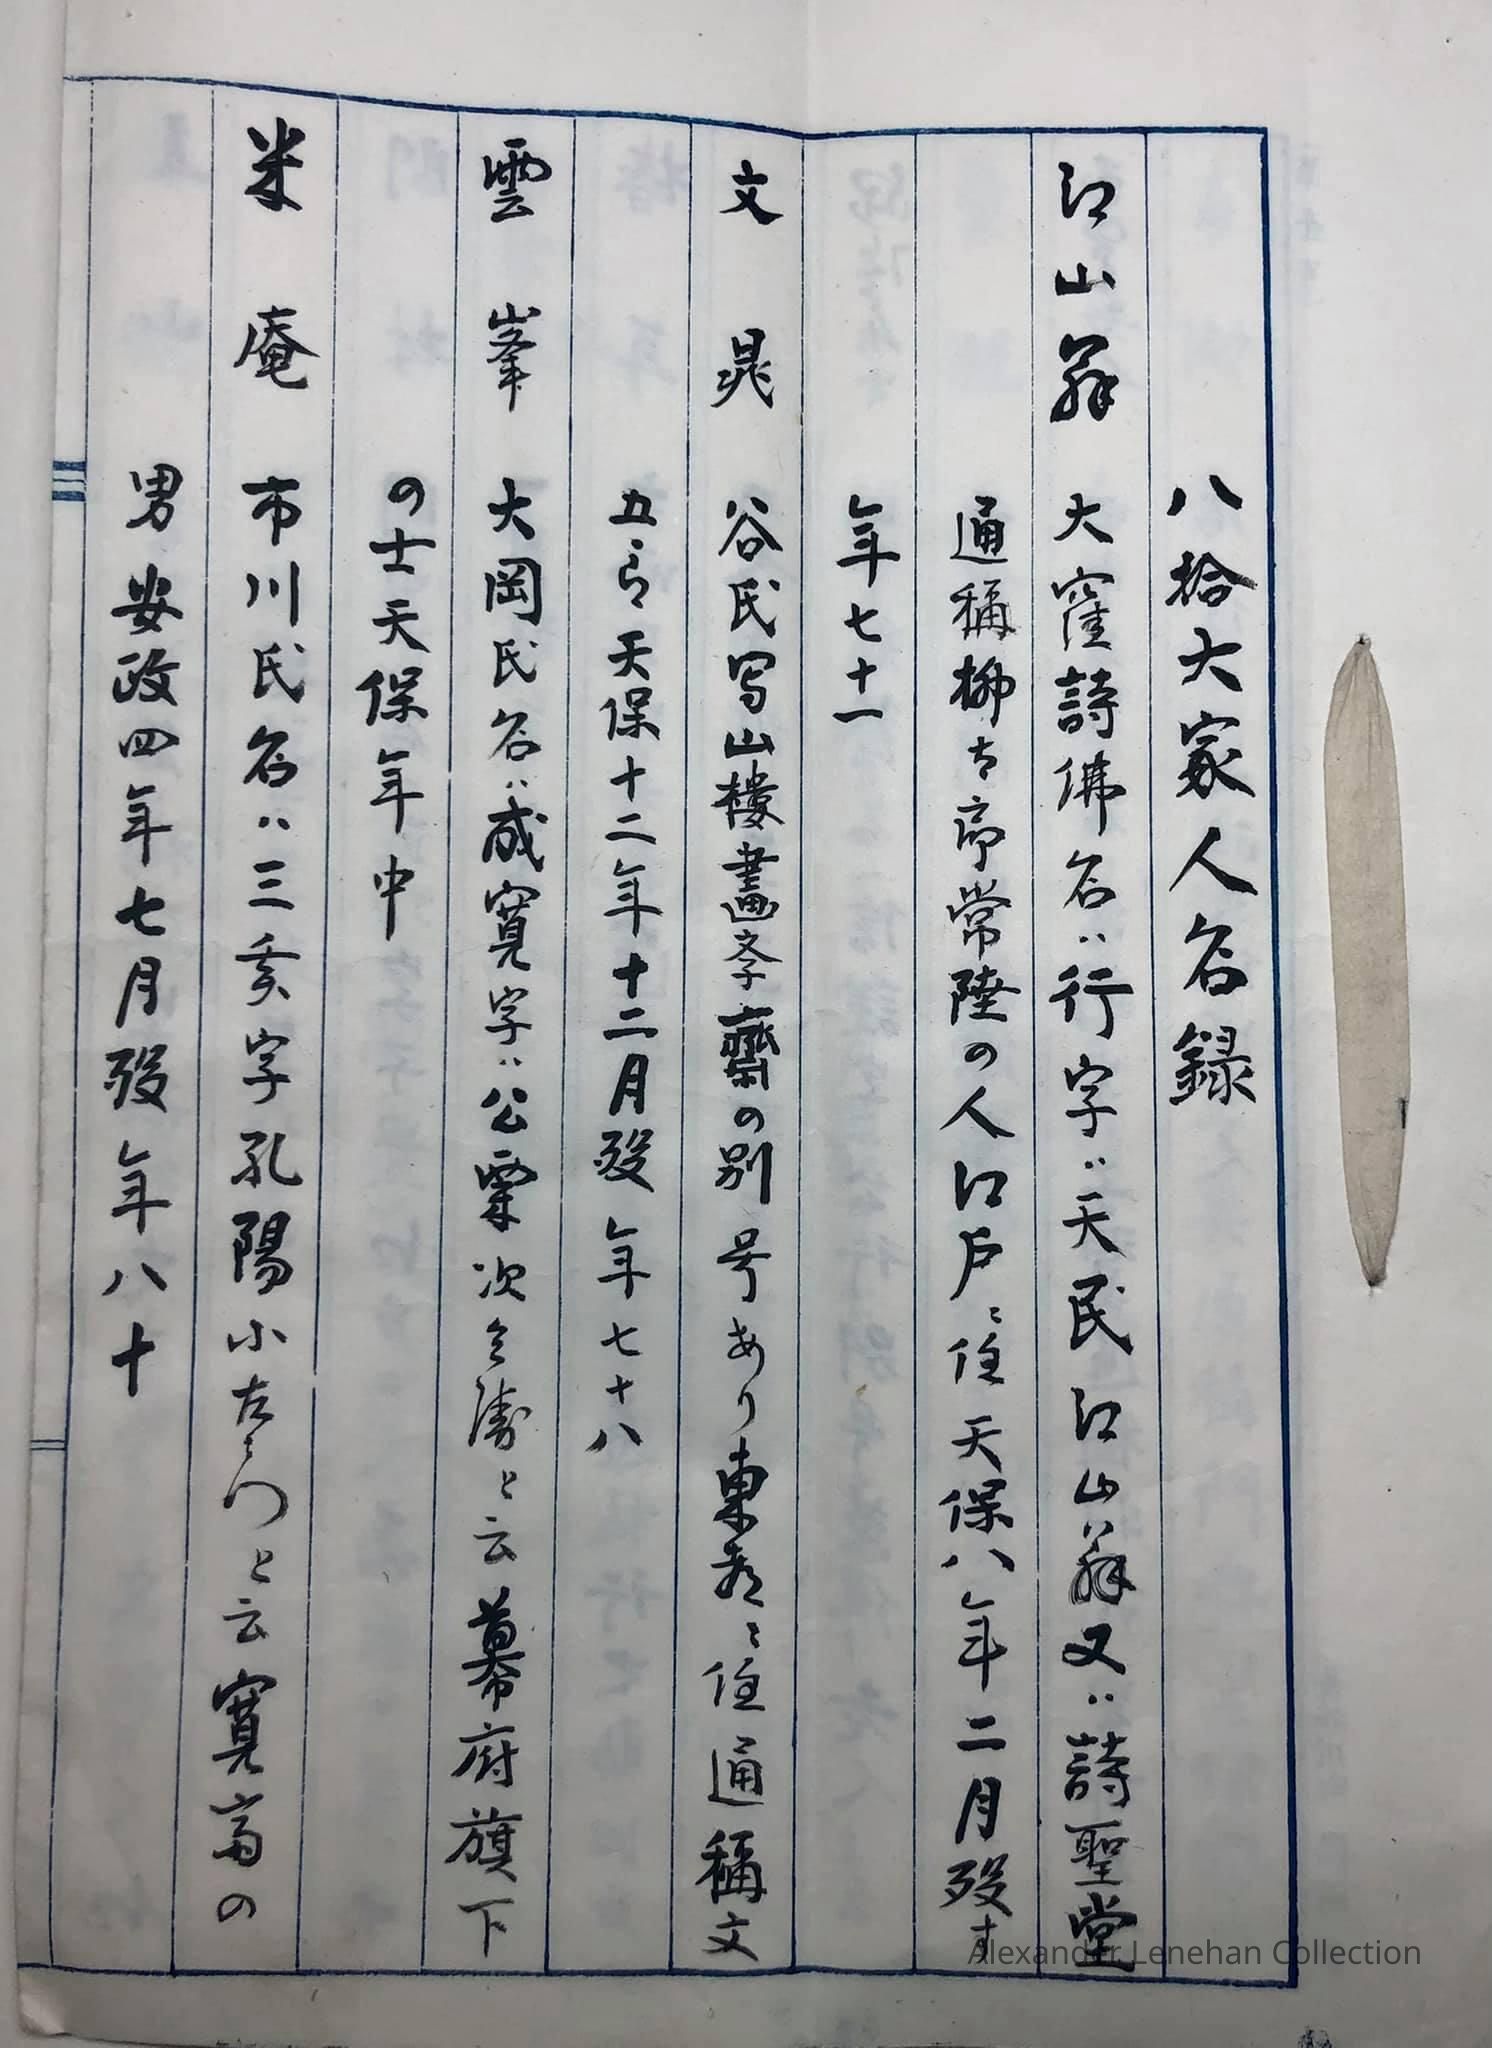 八拾大家人名録
江山翁 大窪詩佛名ハ行字ハ天民江山翁又ハ詩聖堂
通稱柳太郎常陸の人江戸ニ住天保八年二月歿す
年七十一
文晁 谷氏写山樓畫学齋の別号あり東都ニ住通稱文
五郎天保十二年十二月歿年七十八
雲峯 大岡氏名ハ成寛字ハ公栗次兵衛と云幕府旗下
の士天保年中
米庵 市川氏名ハ三亥字孔陽小左衛門と云寛斎の
男安政四年七月歿年八十
Alexander Lenehan Collection